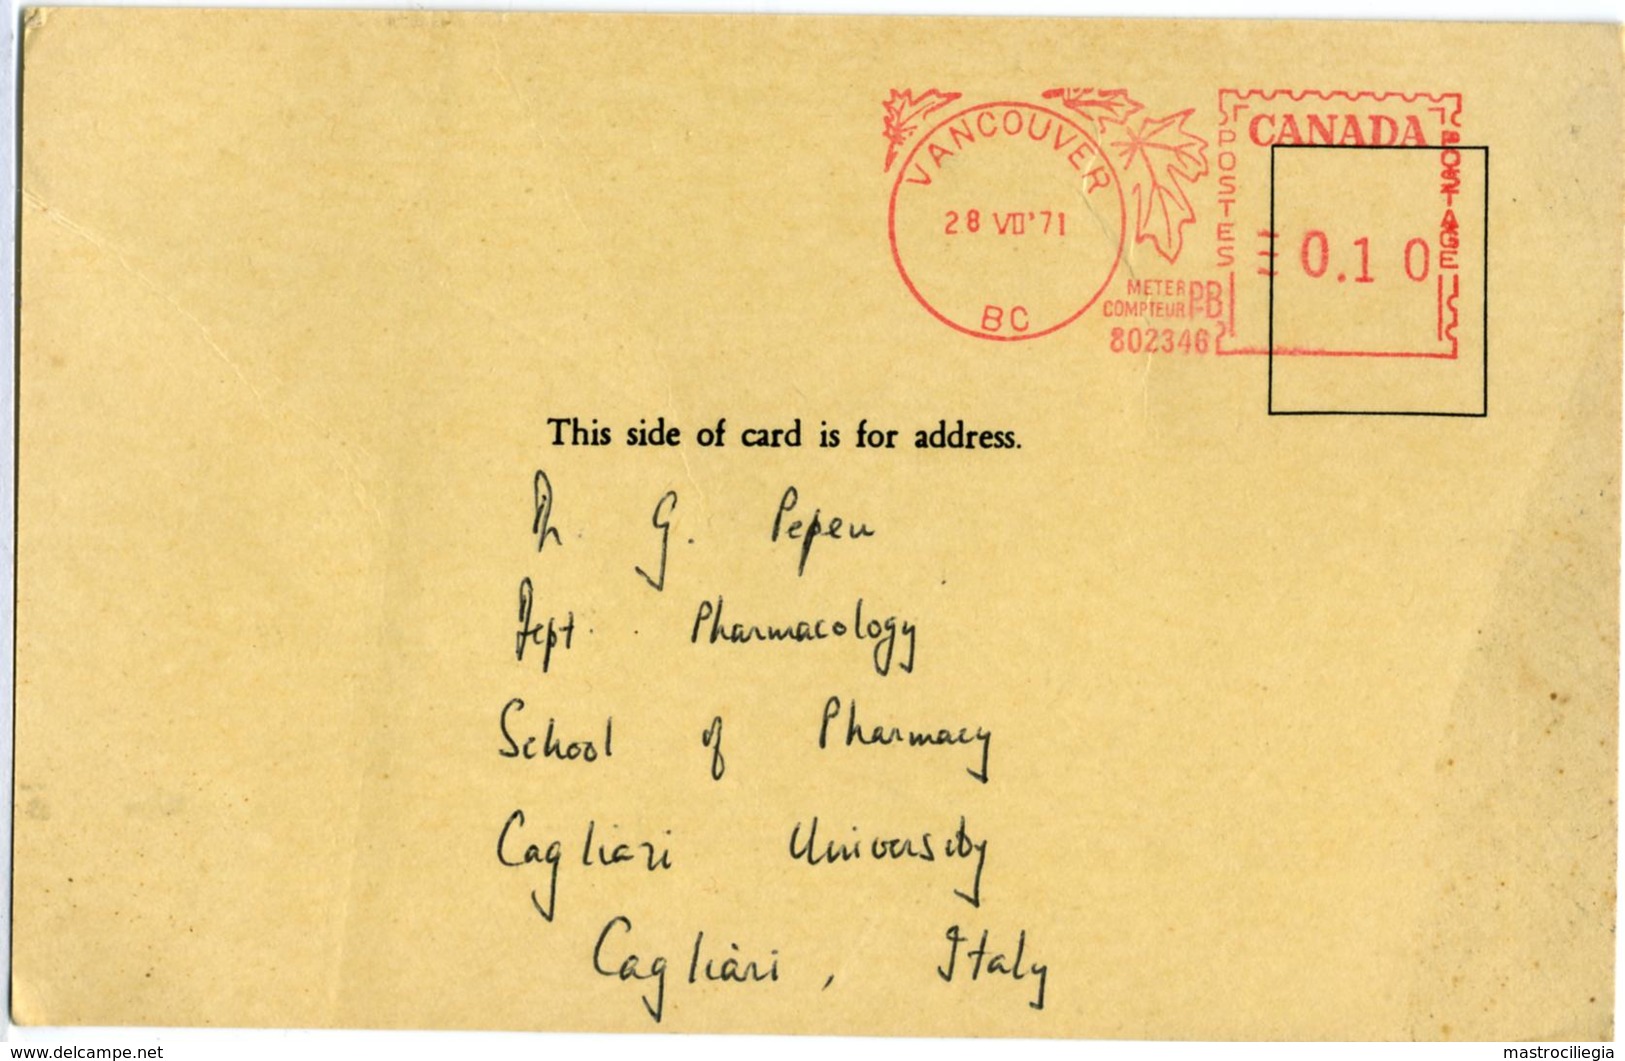 VANCOUVER
28 VII '71
BC
METER
COMPTEUR PB
802346
CANADA
POSTES
POSTAGE
0.10
This side of card is for address.
Dr. G. Pepeu
Dept. Pharmacology
School of Pharmacy
Cagliari University
Cagliari, Italy
www.delcampe.net
mastrociliegia